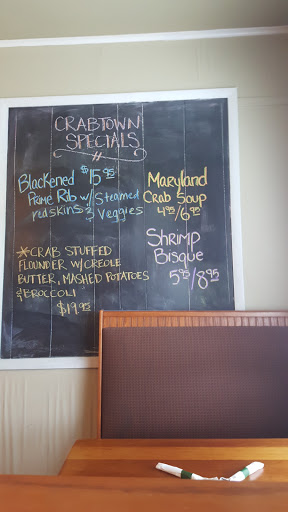 CRABTOWN
SPECIALS
Blackened $15.95
Prime Rib w/Steamed
redskins & Veggies
Maryland
Crab Soup
4.95/6.95
Shrimp
Bisque
5.95/8.95
*CRAB STUFFED
FLOUNDER W/CREOLE
BUTTER, MASHED POTATOES
& BROCCOLI
$19.95